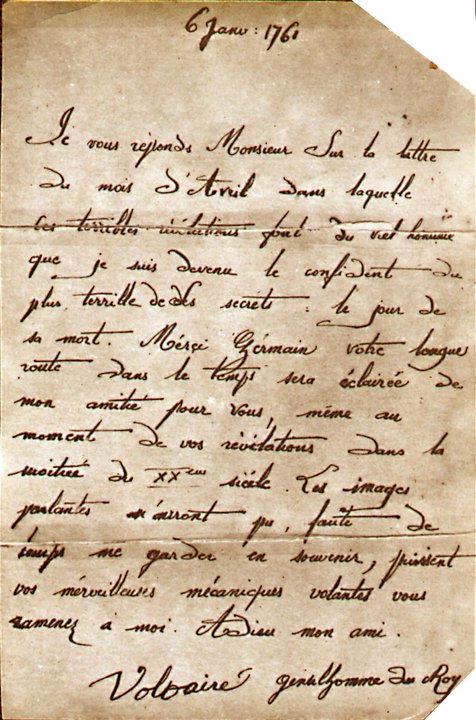 6 Janv : 1761
Je vous réponds Monsieur sur la lettre
du mois d'Avril dans laquelle
les terribles révélations font du viel homme
que je suis devenu le confident du
plus terrille de dés secrets : le jour de
sa mort. Mérçi Gérmain votre longue
route dans le temps sera éclairée de
mon amitié pour vous, même au
moment de vos révélations dans la
moitieé du XXeme siécle. Les images
parlantes n'auront pu, faute de
temps me garder en souvenir, puissent
vos mérveilleuses mécaniques volantes vous
ramener a moi. Adieu mon ami.
Voltaire gentilhomme du Roy